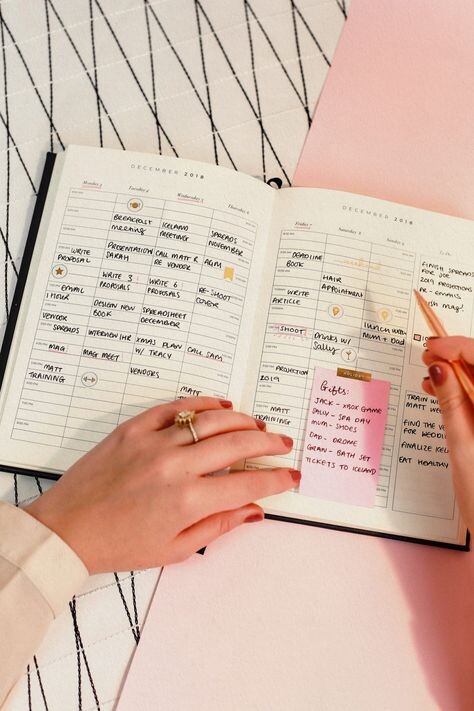 DECEMBER 2018
Monday 3
Tuesday 4
Wednesday 5
Thursday 6
BREAKFAST
MEETING
ICELAND
MEETING
SPREADS
NOVEMBER
WRITE
PROPOSAL
PRESENTATION
SARAH
CALL MATT R
RE VENDER
AGM
EMAIL
1 HOUR
WRITE 3
PROPOSALS
WRITE 6
PROPOSALS
RE-SHOOT
COVER
VENDER
SPREADS
DESIGN NEW
BOOK
SPREADSHEET
DECEMBER
MAG
INTERVIEW
MAG MEET
XMAS PLAN
W/ TRACY
CALL SAM
MATT
TRAINING
VENDORS
MATT
DECEMBER 2018
Friday 7
Saturday 8
DEADLINE
BOOK
HAIR
APPOINTMENT
WRITE
ARTICLE
SHOOT
DRINKS W/
SALLY
LUNCH WITH
MUM + DAD
PROJECTION
2019
MATT
TRAINING
HOLIDAY
Gifts:
JACK - XBOX GAME
SALLY - SPA DAY
MUM - SHOES
DAD - DRONE
GRAN - BATH SET
TICKETS TO ICELAND
FINISH SPREADS
FOR JOE
2019 PROJECTIONS
PR - EMAILS
TRAIN
FIND
FINALIZE
EAT HEALTHY